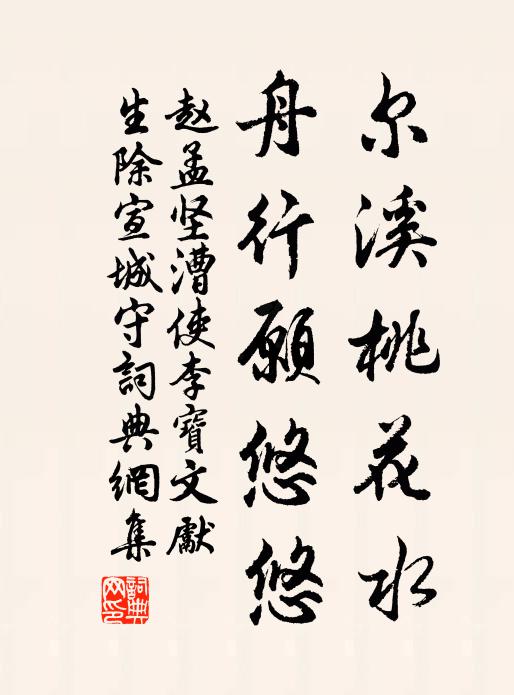 尔溪桃花水
舟行願悠悠
赵孟坚漕使李寶文獻
生除宣城守詞典網集
詞典网印